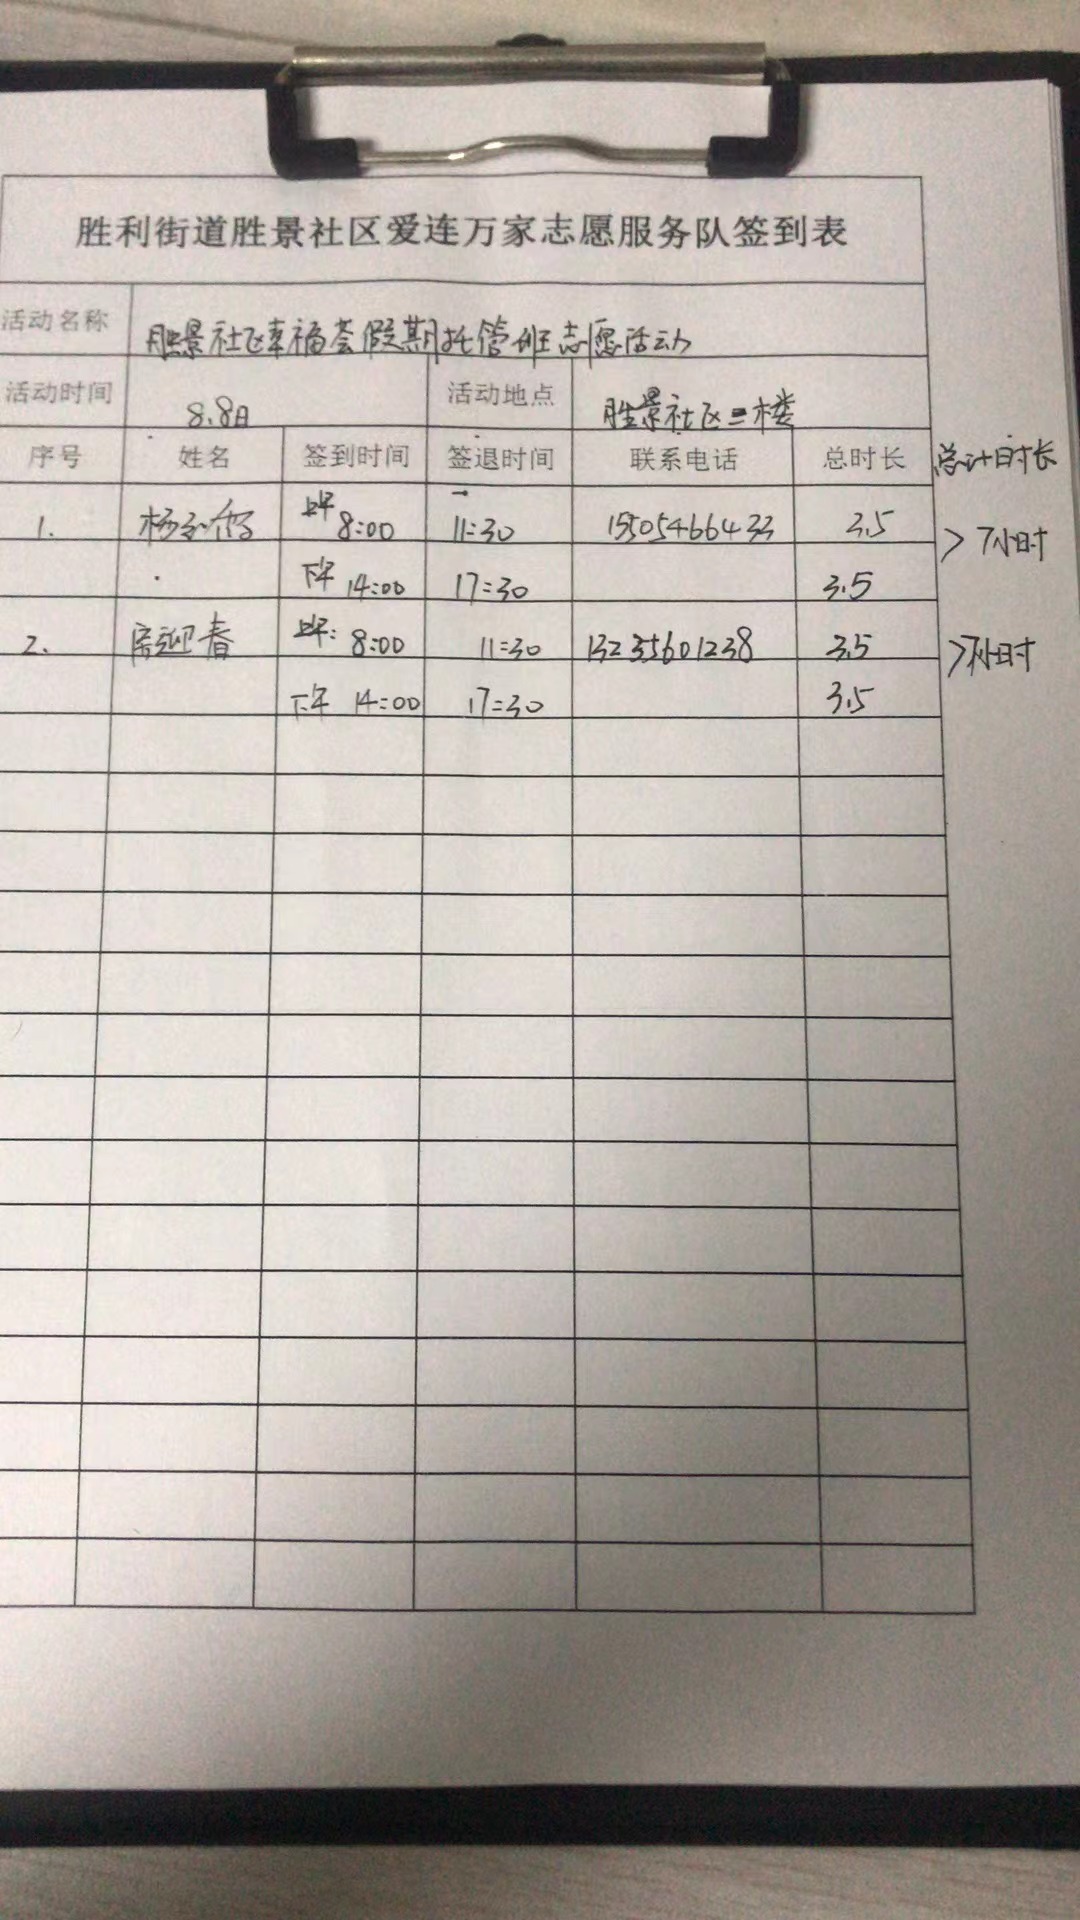 胜利街道胜景社区爱连万家志愿服务队签到表
活动名称 胜景社区幸福荟假期托管班志愿活动
活动时间 8.8日 活动地点 胜景社区二楼
序号 姓名 签到时间 签退时间 联系电话 总时长 总计时长
1. 杨 上午 8:00 11:30 15505466433 3.5 >7小时
下午 14:00 17:30 3.5
2. 迎春 上午: 8:00 11:30 13235601238 3.5 >7小时
下午 14:00 17:30 3.5